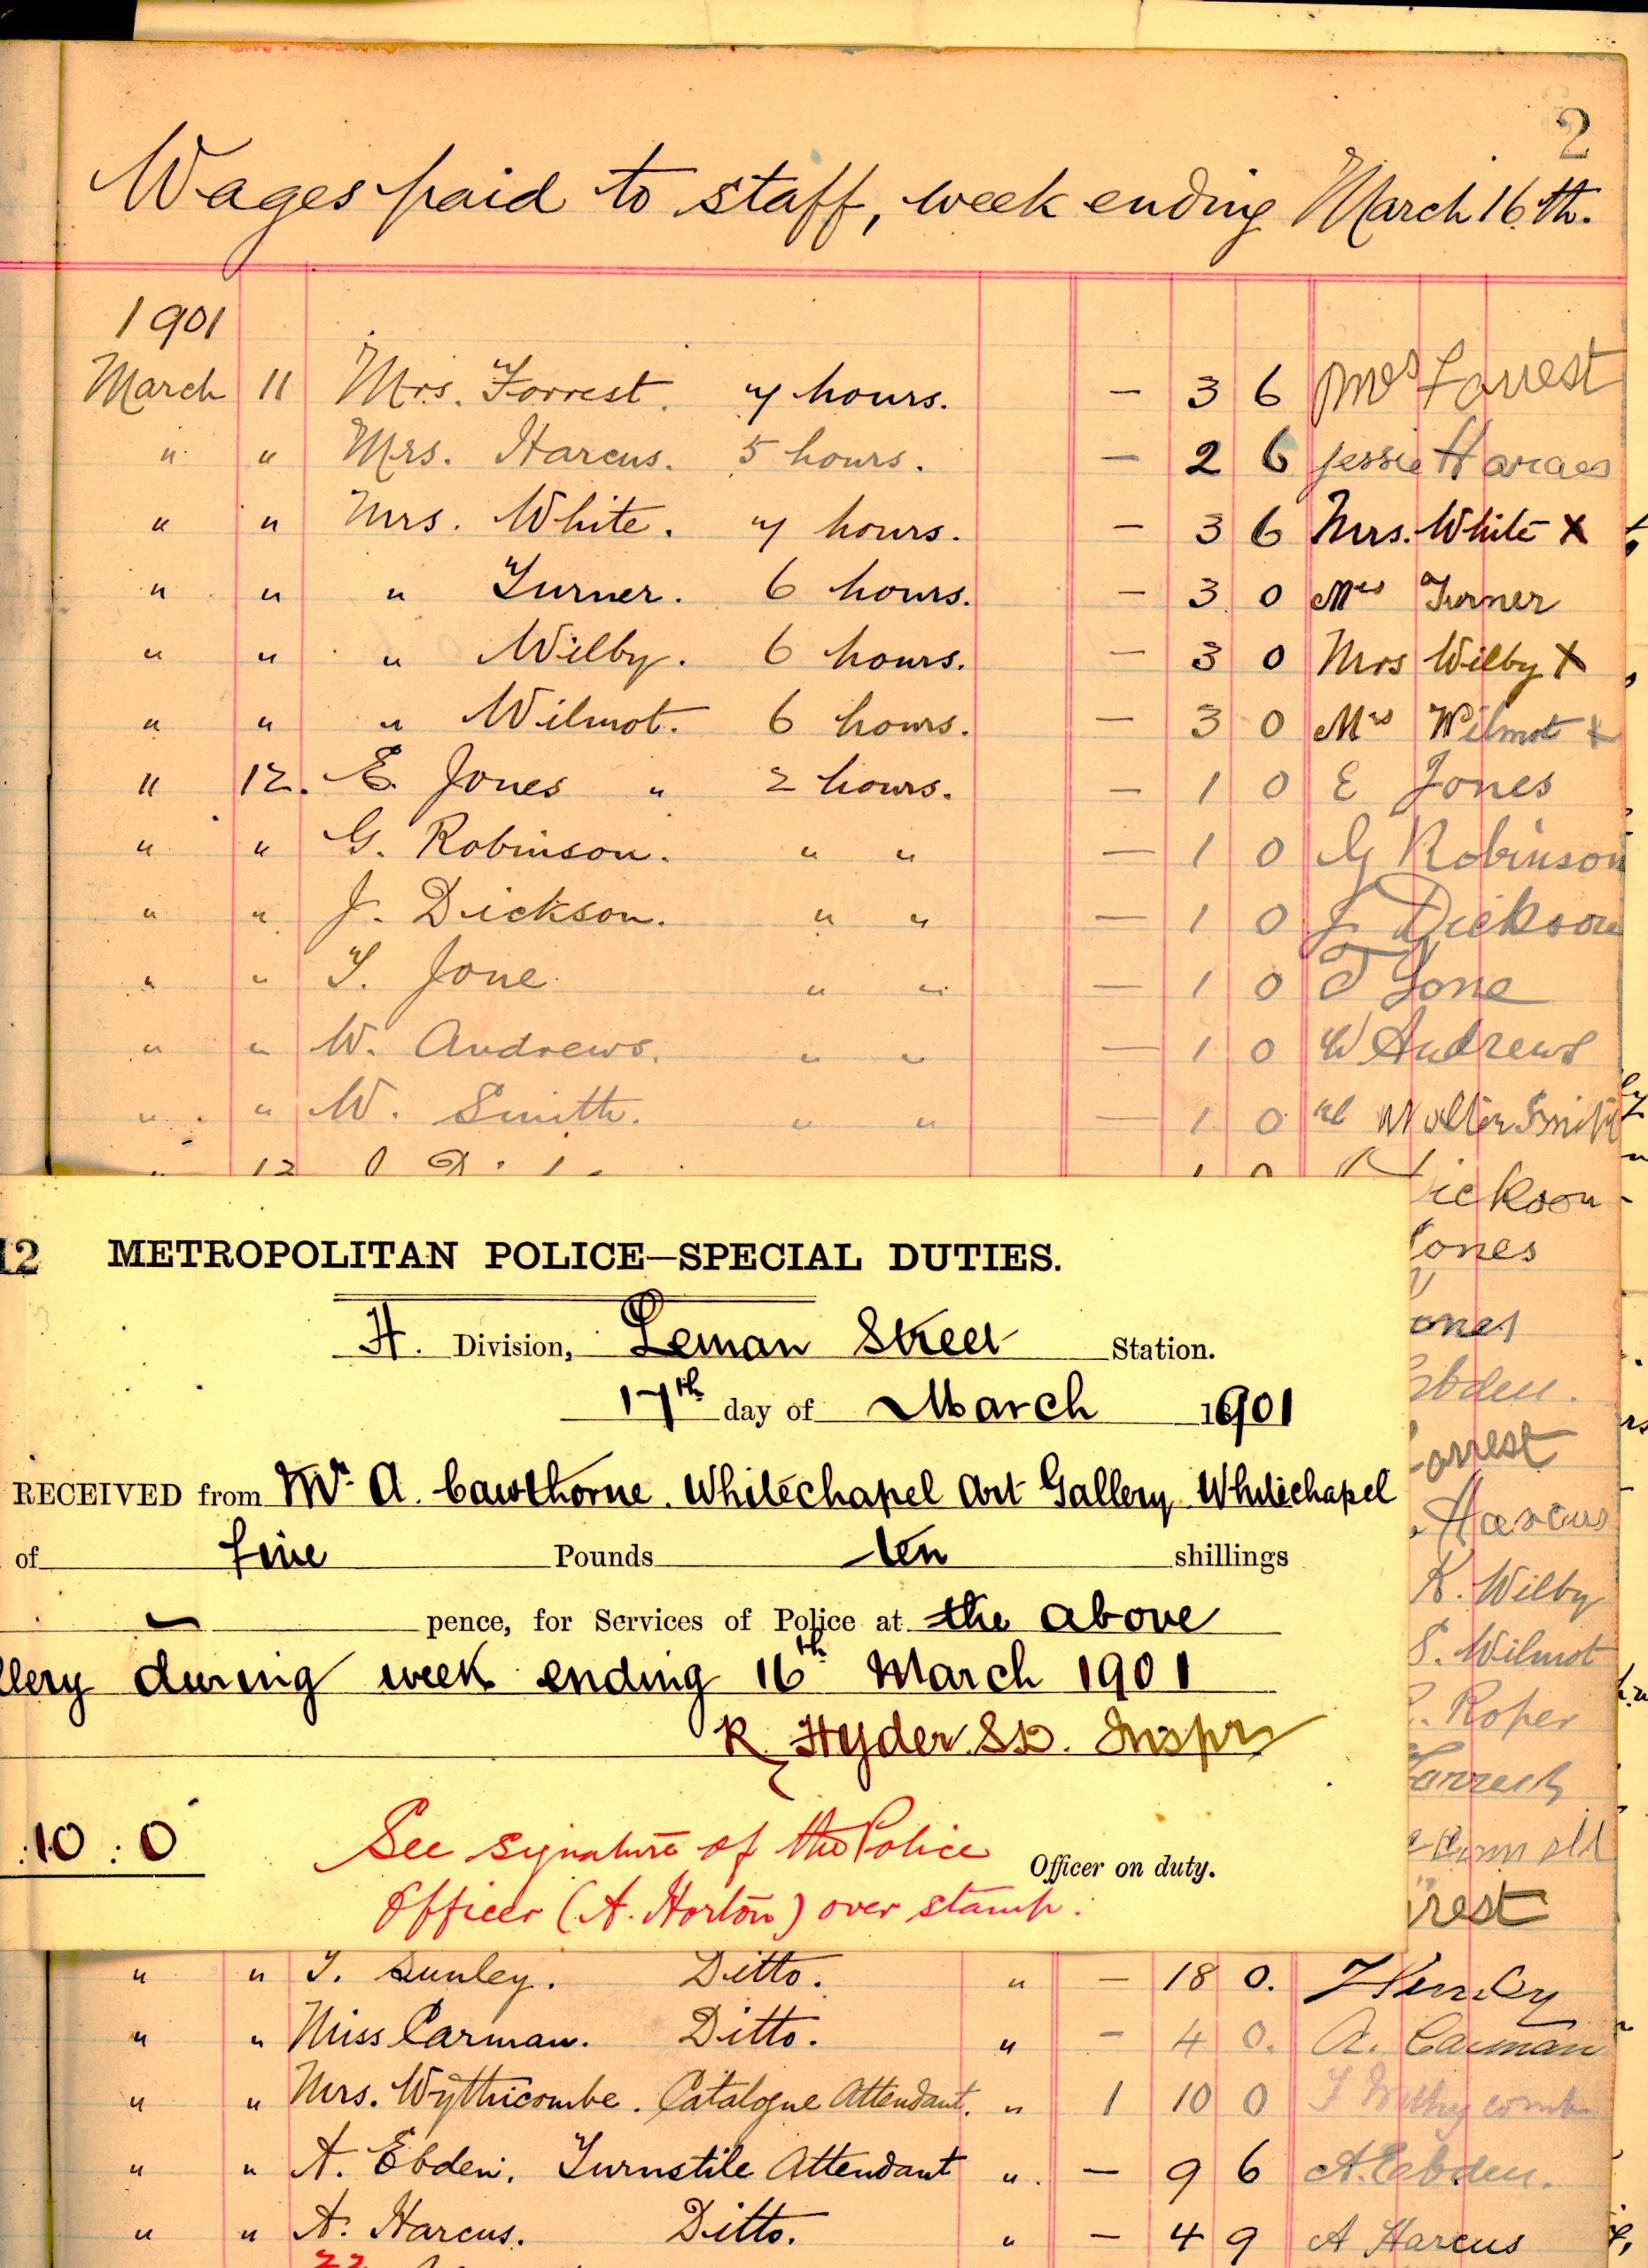 2
Wages paid to staff, week ending March 16th.
1901
March 11 Mrs. Forrest. 7 hours. — 3 6 Mrs Forrest
" " Mrs. Harcus. 5 hours. — 2 6 Jessie Harcus
" " Mrs. White. 7 hours. — 3 6 Mrs. White X
" " " Turner. 6 hours. — 3 0 Mrs Turner
" " " Wilby. 6 hours. — 3 0 Mrs Wilby X
" " " Wilmot. 6 hours. — 3 0 Mrs Wilmot X
" 12. E. Jones " 2 hours. — 1 0 E Jones
" " G. Robinson. " " — 1 0 G Robinson
" " J. Dickson. " " — 1 0 J Dickson
" " T. Jone " " — 1 0 T Jone
" " W. Andrews. " " — 1 0 W Andrews
" " W. Smith. " " — 1 0 Walter Smith
12
ickson
ones
ones
bden.
orrest
Harcus
K. Wilby
S. Wilmot
. Roper
rest
12 METROPOLITAN POLICE—SPECIAL DUTIES.
H. Division, Leman Street Station.
17th day of March 1901
RECEIVED from Mr. A. Cawthorne. Whitechapel Art Gallery Whitechapel
of five Pounds ten shillings
— pence, for Services of Police at the above
llery during week ending 16th March 1901
R. Hyder. S.D. Inspr
:10 : 0
See signature of the Police
Officer on duty.
Officer (A. Horton) over stamp.
" " T. Dunley. Ditto. " — 18 0.
" " Miss Carman. Ditto. " — 4 0. A. Carman
" " Mrs. Wythicombe. Catalogue Attendant. " 1 10 0
" " A. Ebden. Turnstile Attendant " — 9 6 A. Ebden.
" " A. Harcus. Ditto. " — 4 9 A Harcus